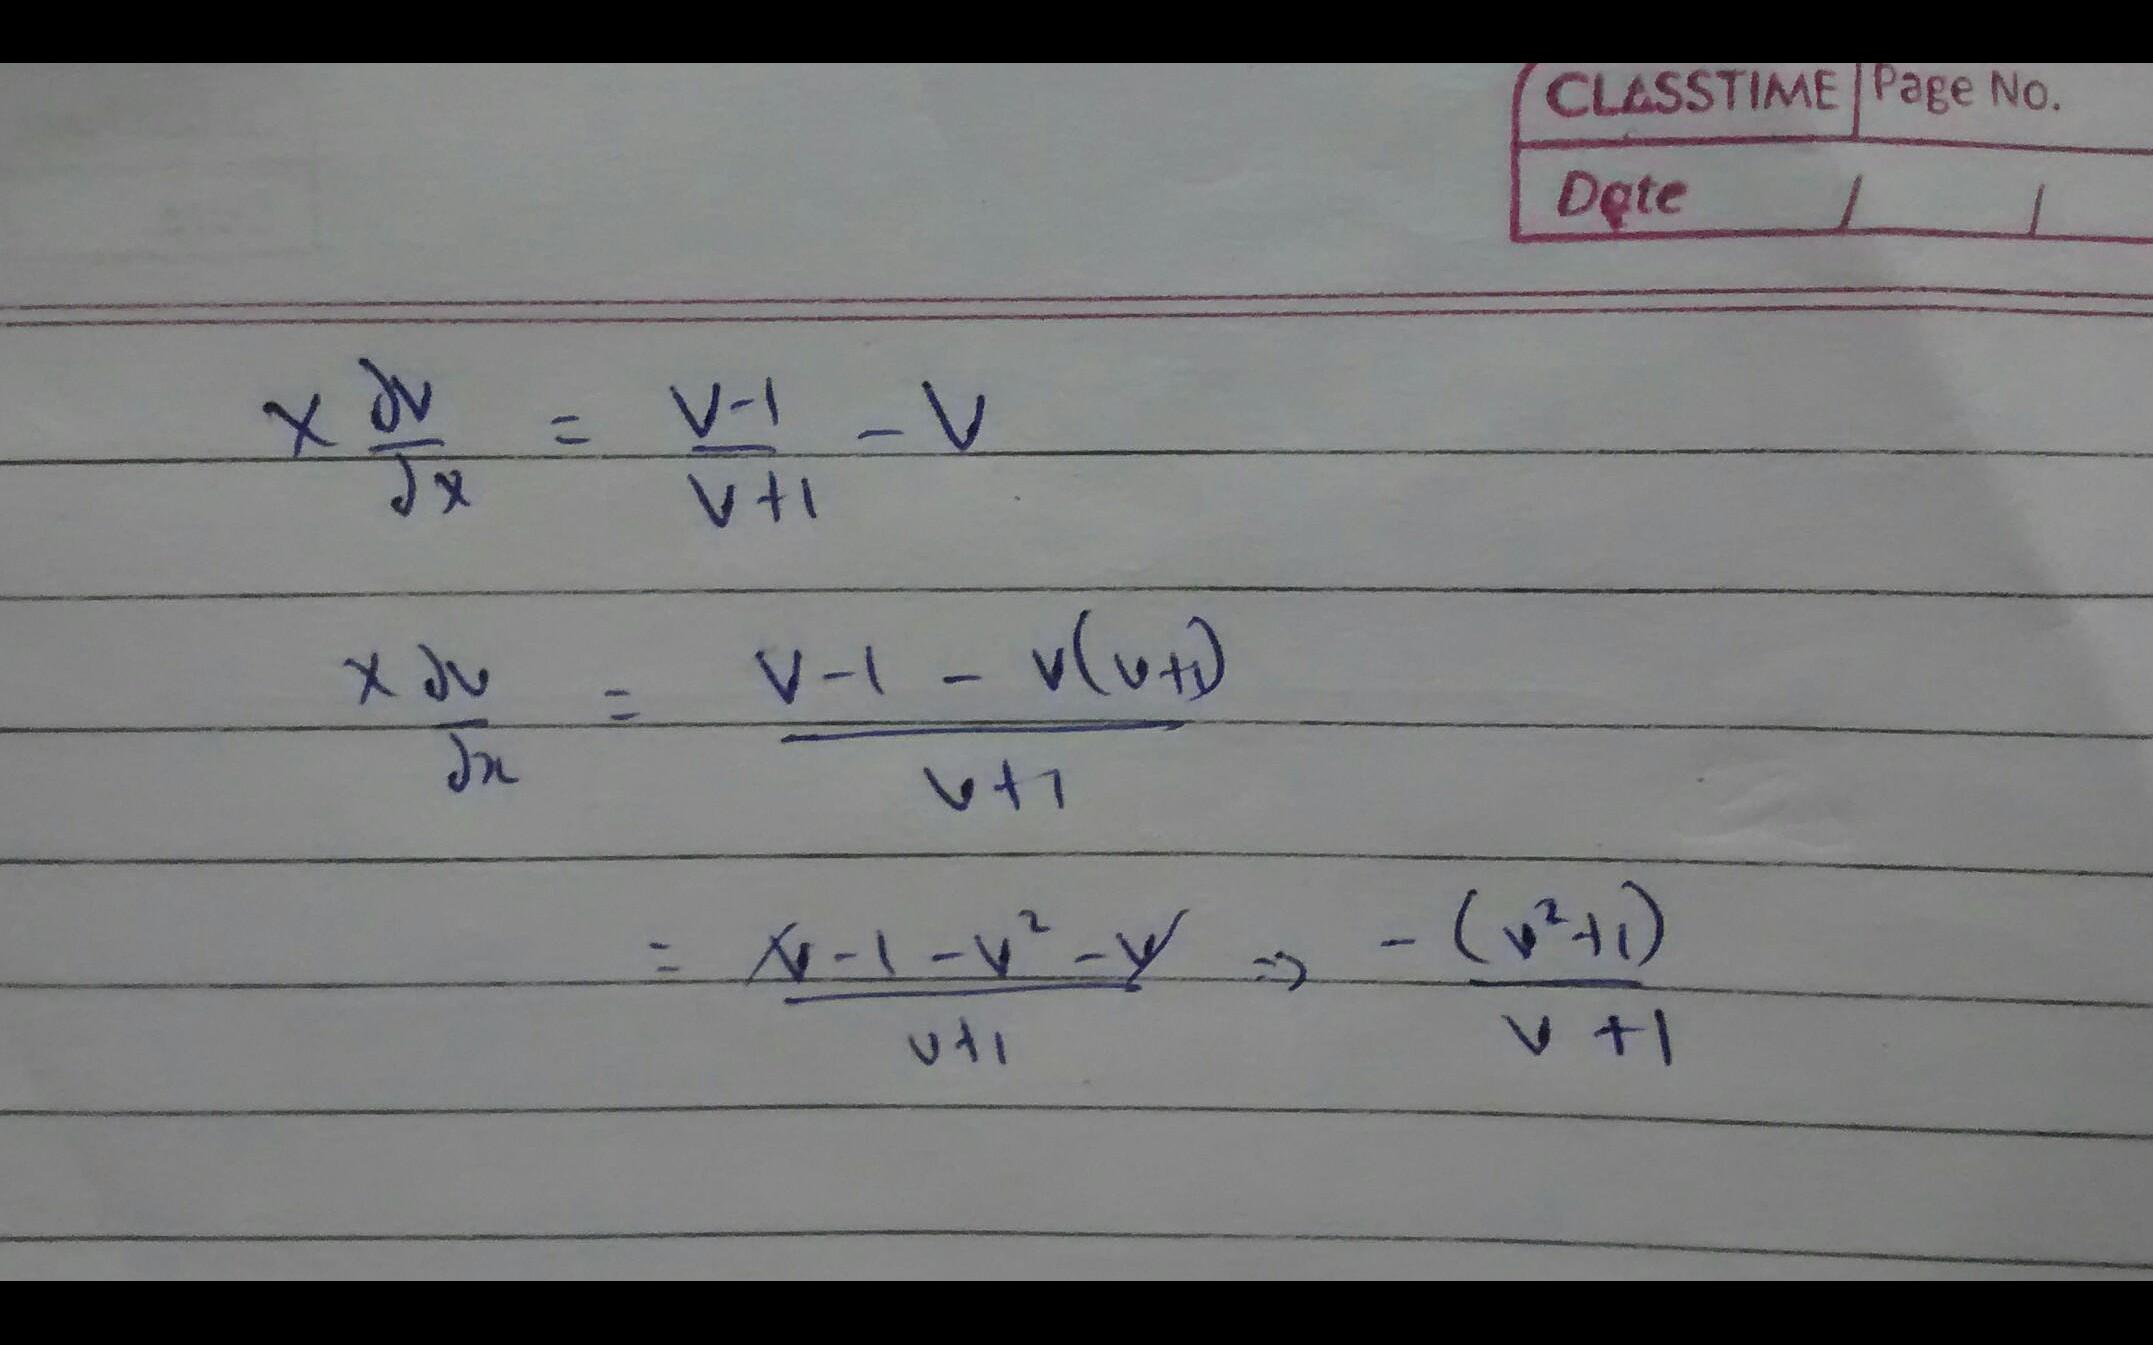 CLASSTIME Page No.
Date / /
x dv/dx = v-1/v+1 - v
x dv/dx = v-1 - v(v+1)/v+1
= v-1-v²-v/v+1 ⇒ -(v²+1)/v+1